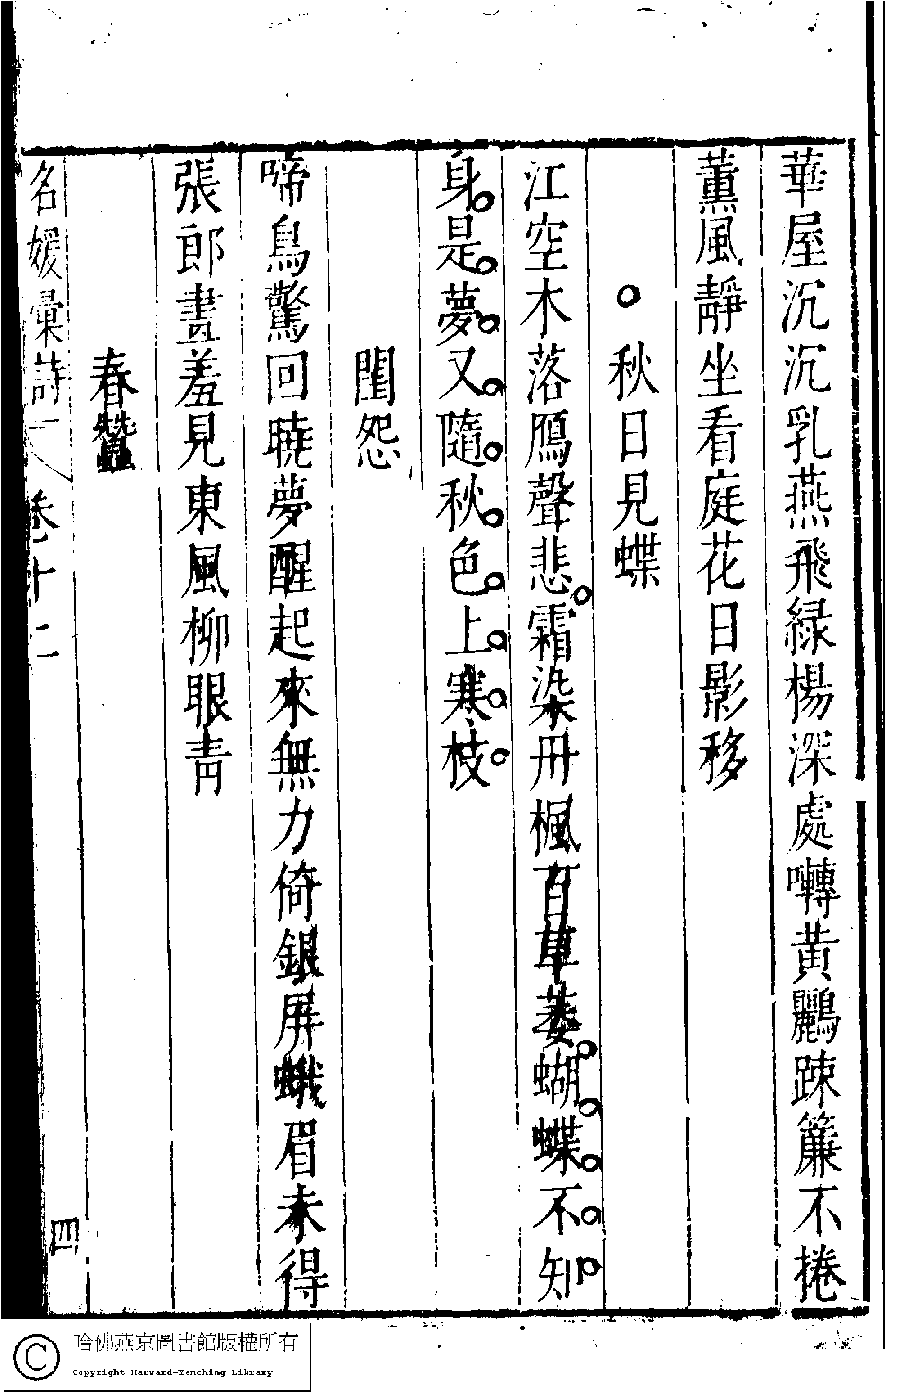 華屋沉沉乳燕飛緑楊深處囀黃鸝踈簾不捲
薰風靜坐看庭花日影移
秋日見蝶
江空木落鴈聲悲霜染丹楓百草萎蝴蝶不知
身是夢又隨秋色上寒枝
閨怨
啼鳥驚回曉夢醒起來無力倚銀屏蛾眉未得
張郎畫羞見東風柳眼青
春蠶
名媛彙詩 卷十二 四
哈佛燕京圖書館版權所有
Copyright Harvard-Yenching Library